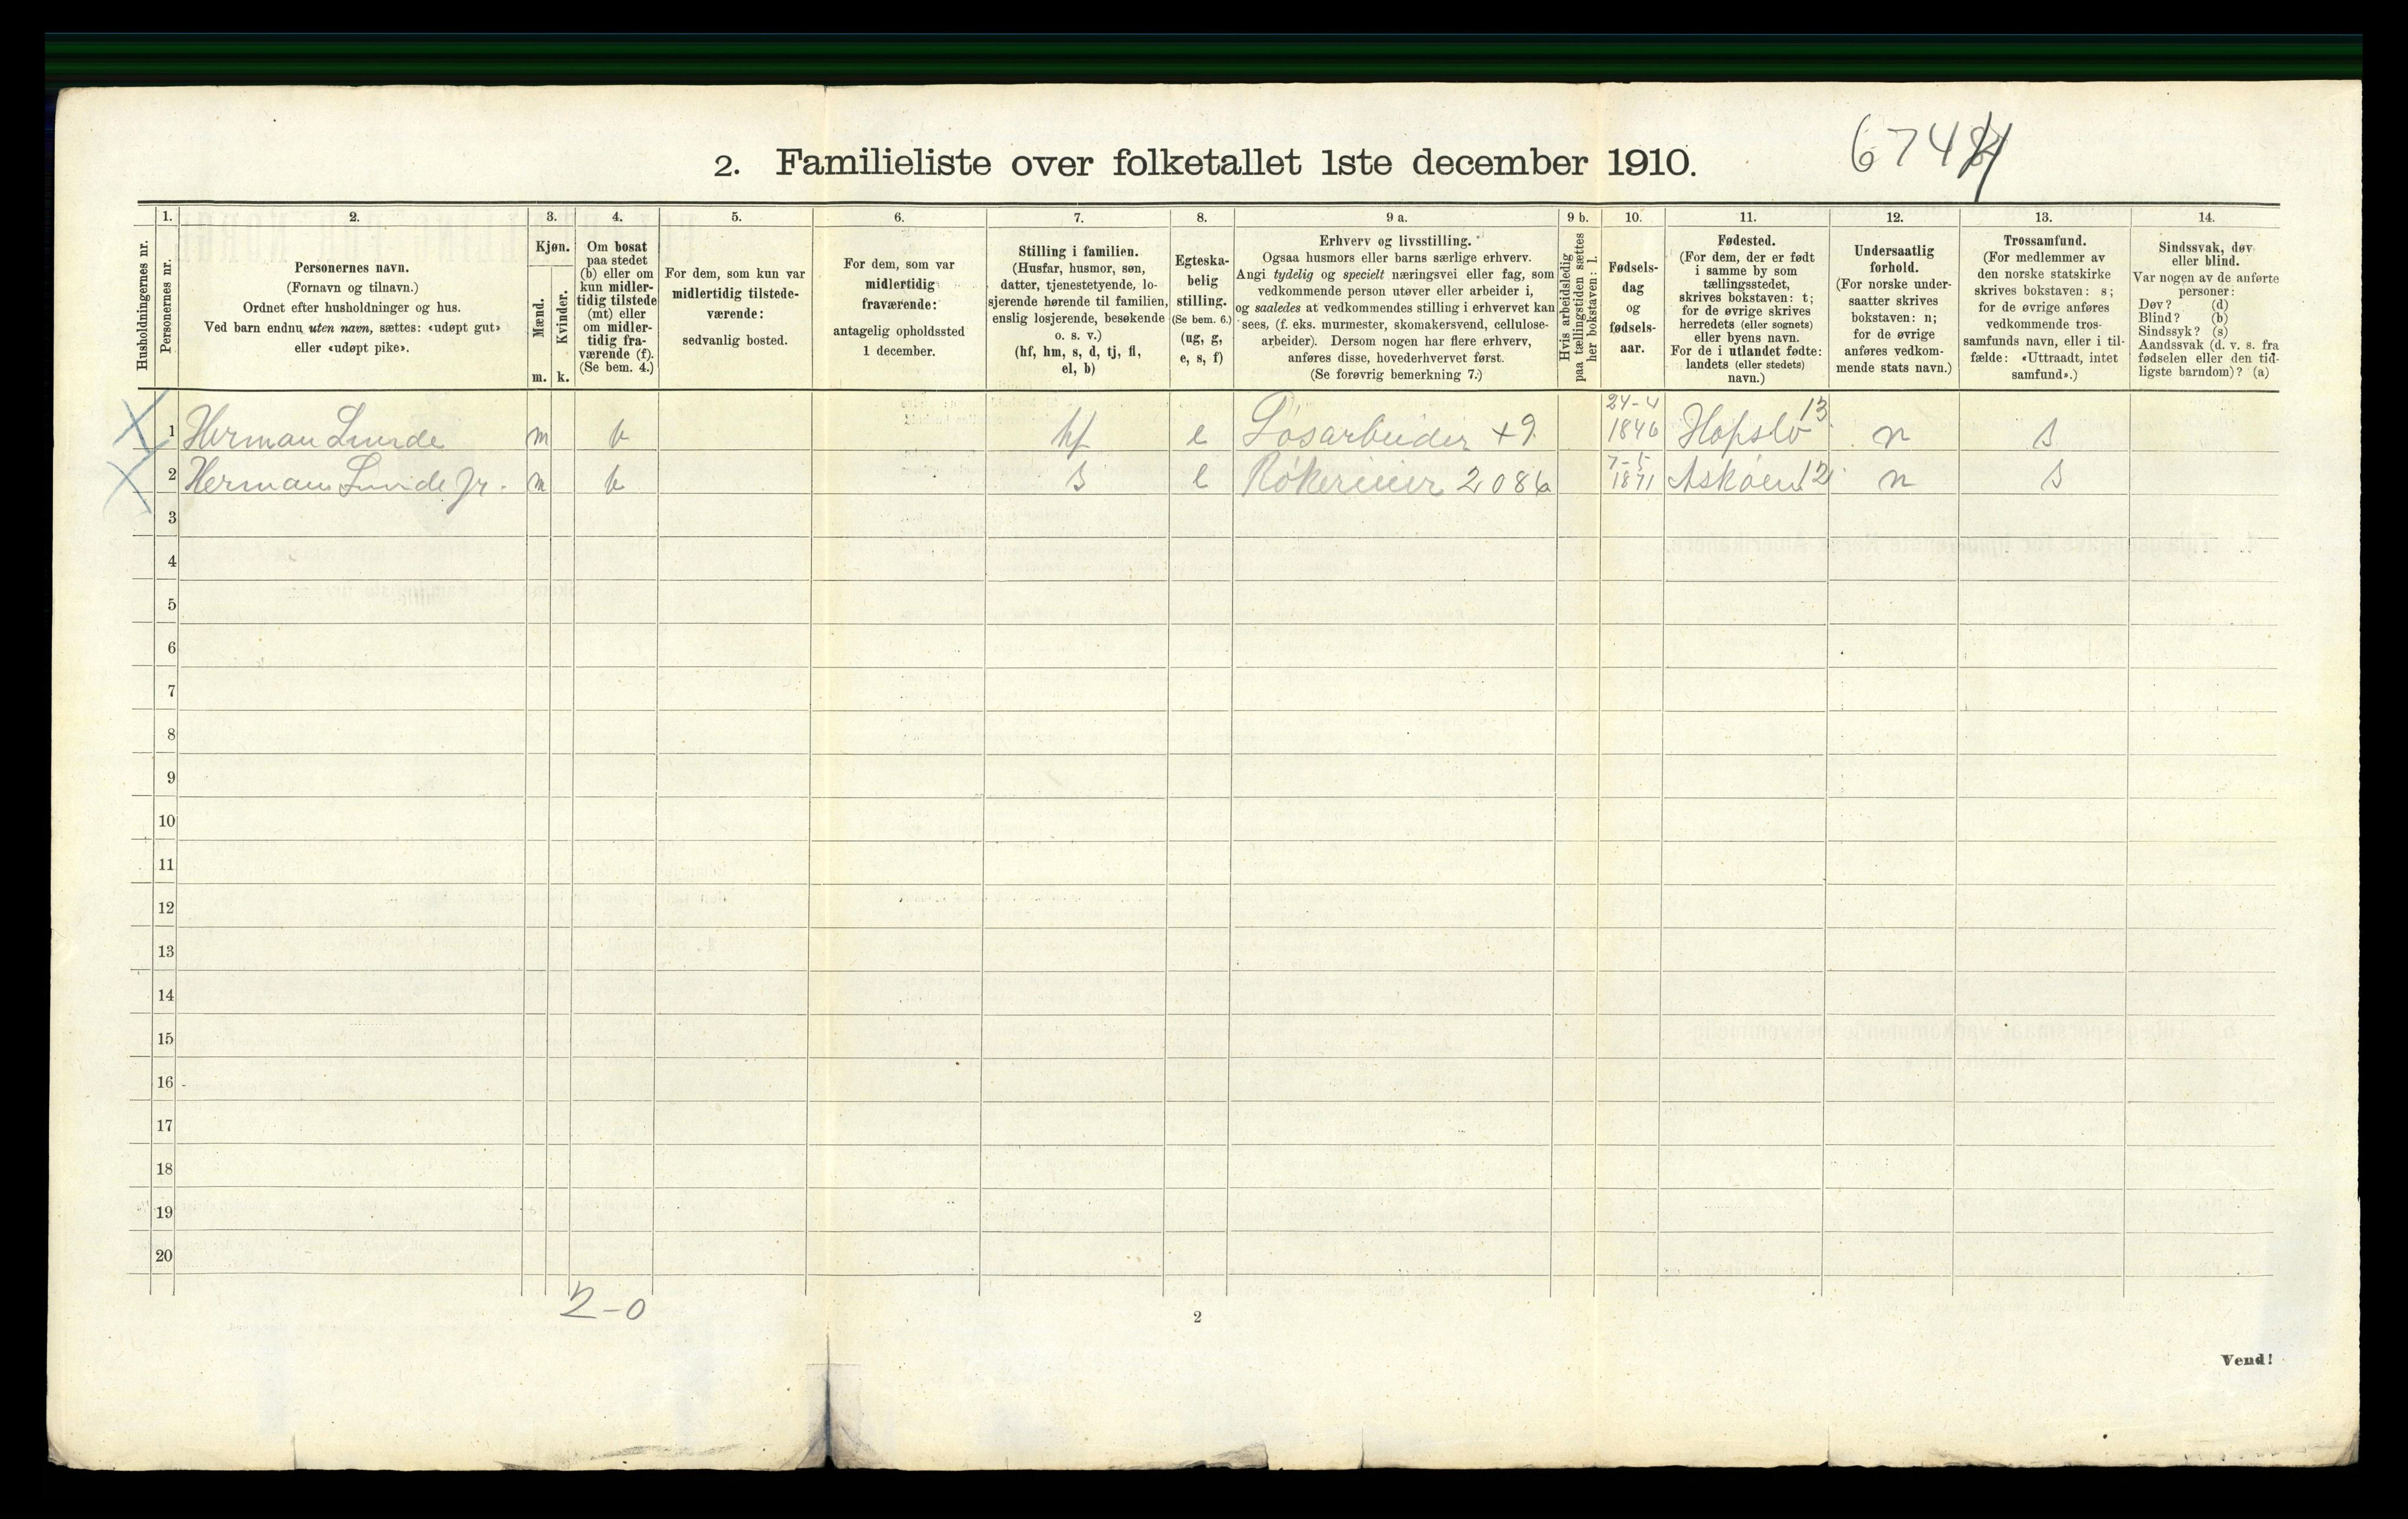 6748
2. Familieliste over folketallet 1ste december 1910.
Husholdningernes nr.
1.
Personernes nr.
2.
Personernes navn.
(Fornavn og tilnavn.)
Ordnet efter husholdninger og hus.
Ved barn endnu uten navn, sættes: «udøpt gut»
eller «udøpt pike».
3.
Kjøn.
Mænd.
m.
Kvinder.
k.
4.
Om bosat
paa stedet
(b) eller om
kun midler-
tidig tilstede
(mt) eller
om midler-
tidig fra-
værende (f).
(Se bem. 4.)
5.
For dem, som kun var
midlertidig tilstede-
værende:
sedvanlig bosted.
6.
For dem, som var
midlertidig
fraværende:
antagelig opholdssted
1 december.
7.
Stilling i familien.
(Husfar, husmor, søn,
datter, tjenestetyende, lo-
sjerende hørende til familien,
enslig losjerende, besøkende
o. s. v.)
(hf, hm, s, d, tj, fl,
el, b)
8.
Egteska-
belig
stilling.
(Se bem. 6.)
(ug, g,
e, s, f)
9 a.
Erhverv og livsstilling.
Ogsaa husmors eller barns særlige erhverv.
Angi tydelig og specielt næringsvei eller fag, som
vedkommende person utøver eller arbeider i,
og saaledes at vedkommendes stilling i erhvervet kan
sees, (f. eks. murmester, skomakersvend, cellulose-
arbeider). Dersom nogen har flere erhverv,
anføres disse, hovederhvervet først.
(Se forøvrig bemerkning 7.)
9 b.
Hvis arbeidsledig
paa tællingstiden sættes
her bokstaven: l.
10.
Fødsels-
dag
og
fødsels-
aar.
11.
Fødested.
(For dem, der er født
i samme by som
tællingsstedet,
skrives bokstaven: t;
for de øvrige skrives
herredets (eller sognets)
eller byens navn.
For de i utlandet fødte:
landets (eller stedets)
navn.)
12.
Undersaatlig
forhold.
(For norske under-
saatter skrives
bokstaven: n;
for de øvrige
anføres vedkom-
mende stats navn.)
13.
Trossamfund.
(For medlemmer av
den norske statskirke
skrives bokstaven: s;
for de øvrige anføres
vedkommende tros-
samfunds navn, eller i til-
fælde: «Uttraadt, intet
samfund».)
14.
Sindssvak, døv
eller blind.
Var nogen av de anførte
personer:
Døv? (d)
Blind? (b)
Sindssyk? (s)
Aandssvak (d. v. s. fra
fødselen eller den tid-
ligste barndom)? (a)
1 Herman Lunde m b hf e Løsarbeider +9 24-4 1846 Hafslo 13 n s
2 Herman Lunde Jr. m b s e 2086 7-5 1871 Askøen 12 n s
3
4
5
6
7
8
9
10
11
12
13
14
15
16
17
18
19
20
2-0
2
Vend!